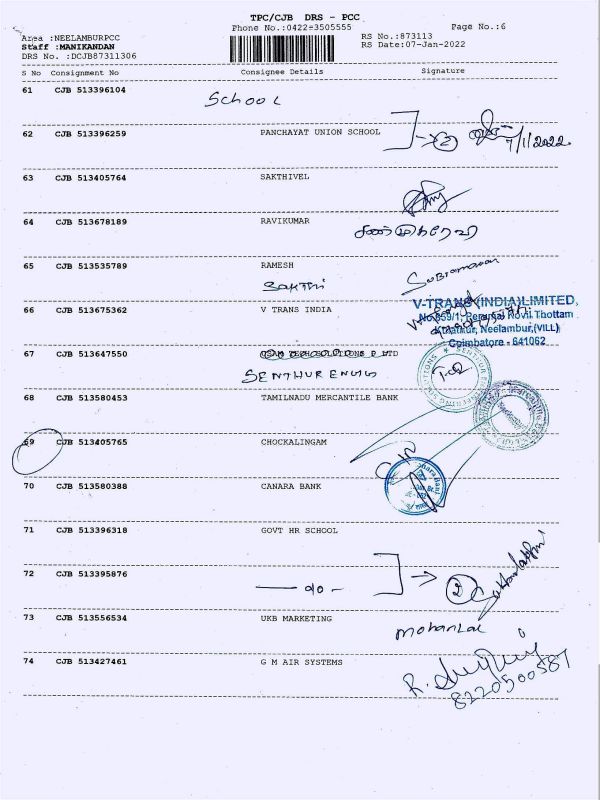 TPC/CJB DRS - PCC
Phone No.:0422-3505555
Page No.:6
Area :NEELAMBURPCC
Staff :MANIKANDAN
DRS No. :DCJB87311306
RS No.:873113
RS Date:07-Jan-2022
S No Consignment No Consignee Details Signature
61 CJB 513396104 School
62 CJB 513396259 PANCHAYAT UNION SCHOOL
2 7/1/2022
63 CJB 513405764 SAKTHIVEL
64 CJB 513678189 RAVIKUMAR
65 CJB 513535789 RAMESH
SAKTHI Subramanian
66 CJB 513675362 V TRANS INDIA
V-TRANS (INDIA) LIMITED,
No.859/1, Perumal Kovil Thottam
Neelambur,(VILL)
Coimbatore - 641062
67 CJB 513647550
SENTHUR ENGG
68 CJB 513580453 TAMILNADU MERCANTILE BANK
69 CJB 513405765 CHOCKALINGAM
70 CJB 513580388 CANARA BANK
71 CJB 513396318 GOVT HR SCHOOL
72 CJB 513395876 - do - 2
73 CJB 513556534 UKB MARKETING
mohanlal
74 CJB 513427461 G M AIR SYSTEMS
8220500587